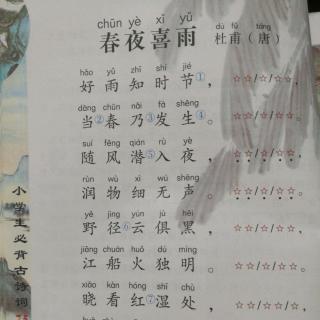 chūn yè xǐ yǔ
春夜喜雨
dù fǔ táng
杜甫（唐）
hǎo yǔ zhī shí jié
好雨知时节①，☆☆/☆/☆☆，
dāng chūn nǎi fā shēng
当②春乃③发生④。☆☆/☆/☆☆。
suí fēng qián rù yè
随风潜⑤入夜，☆☆/☆/☆☆，
rùn wù xì wú shēng
润物细无声。☆☆/☆/☆☆。
yě jìng yún jù hēi
野径⑥云俱黑，☆☆/☆/☆☆，
jiāng chuán huǒ dú míng
江船火独明。☆☆/☆/☆☆。
xiǎo kàn hóng shī chù
晓看红⑦湿处，☆☆/☆/☆☆，
小学生必背古诗词75